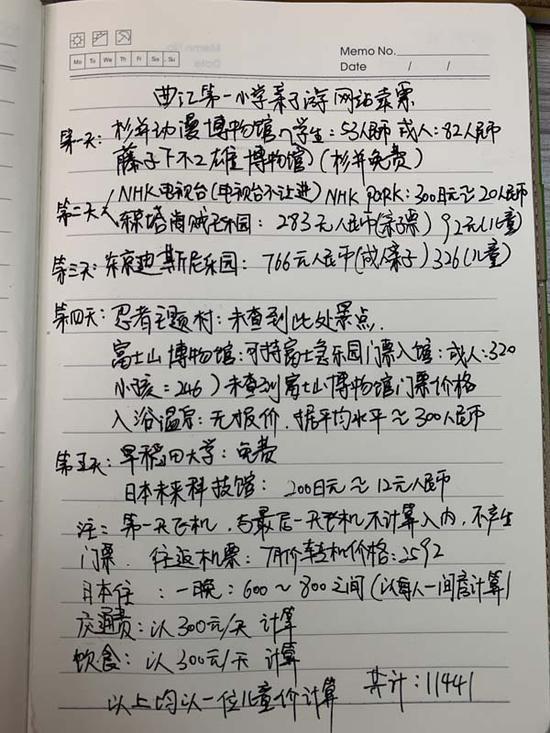 Memo No.
Mo Tu We Th Fr Sa Su
Date / /
曲江第一小学亲子游网站录票
第一天: 杉并动漫博物馆 学生: 53人民币 成人: 82人民币
藤子不二雄博物馆 (杉并免费)
第二天 NHK电视台(电视台不让进) NHK PARK: 300日元≈20人民币
东京塔海贼王乐园: 283元人民币(亲子票) 92元(儿童)
第三天: 东京迪斯尼乐园: 766元人民币(成人亲子) 326(儿童)
第四天: 忍者主题村: 未查到此处景点.
富士山博物馆: 可持富士急乐园门票入馆: 成人:320
小孩:246) 未查到富士山博物馆门票价格
入浴温泉: 无报价. 据平均水平≈300人民币
第五天: 早稻田大学: 免费
日本未来科技馆: 200日元≈12元人民币
注: 第一天飞机, 与最后一天飞机不计算入内, 不产生
门票. 往返机票: 7月价转机价格: 2592
日本住: 一晚: 600~800之间(以每人一间房计算)
交通费: 以300元/天 计算
饮食: 以300元/天 计算
以上均以一位儿童价计算 共计: 11441